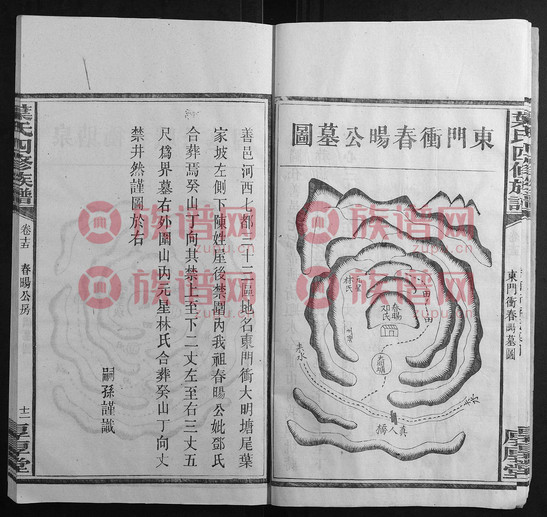 東門衝春暘公墓圖
葉氏四修族譜
東門衝春暘墓圖
春暘
鄧氏
林氏
大明塘
田
田
來水
真人橋
葉氏四修族譜
卷十五
春暘公房
十二
善邑河西七都三十三區地名東門衝大明塘尾葉
家坡左側下陳姓屋後禁圍內我祖春暘公妣鄧氏
合葬焉癸山丁向其禁上至下二丈左至右三丈五
尺爲界墓右外圍山內元星林氏合葬癸山丁向丈
禁井然謹圖於右
嗣孫謹識
族谱网
zupu.cn